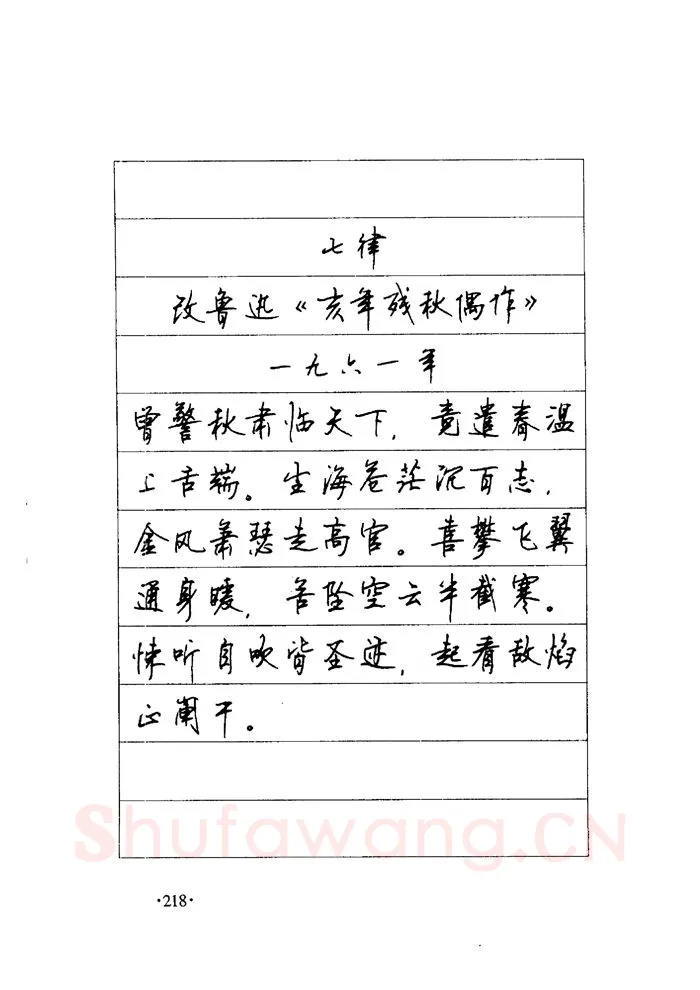 七律
改鲁迅《亥年残秋偶作》
一九六一年
曾警秋肃临天下，竟遣春温
上舌端。尘海苍茫沉百志，
金风萧瑟走高官。喜攀飞翼
通身暖，苦坠空云半截寒。
悚听自吹皆圣迹，起看敌焰
正阑干。
Shufawang.CN
·218·